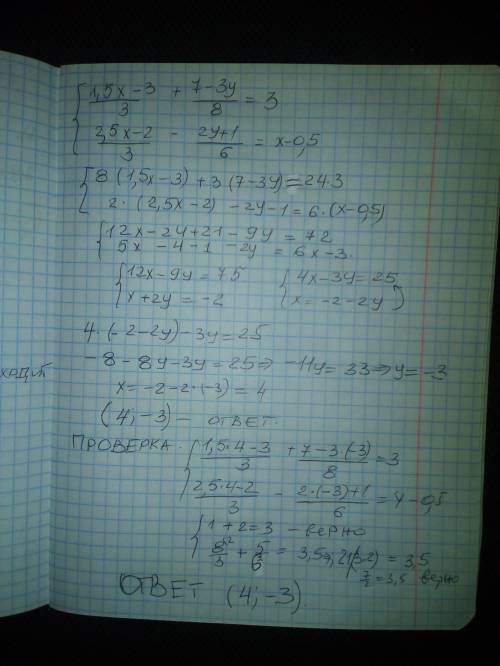 { (1,5x-3)/3 + (7-3y)/8 = 3
(2,5x-2)/3 - (2y+1)/6 = x-0,5
{ 8(1,5x-3)+3(7-3y)=24·3
2·(2,5x-2) -2y-1=6·(x-0,5)
{ 12x-24+21-9y = 72
5x -4-1 -2y = 6x-3.
{ 12x-9y=75 { 4x-3y=25
x+2y=-2 x=-2-2y
4·(-2-2y)-3y=25
-8-8y-3y=25⇒ -11y=33⇒y=-3
x=-2-2·(-3)=4
(4;-3)- ОТВЕТ.
ПРОВЕРКА. { (1,5·4-3)/3 + (7-3·(-3))/8 =3
(2,5·4-2)/3 - (2·(-3)+1)/6 = 4-0,5
{ 1+2=3 - верно
8/3 + 5/6 = 3,5 = 3,5
7/2=3,5 верно
ОТВЕТ (4;-3).